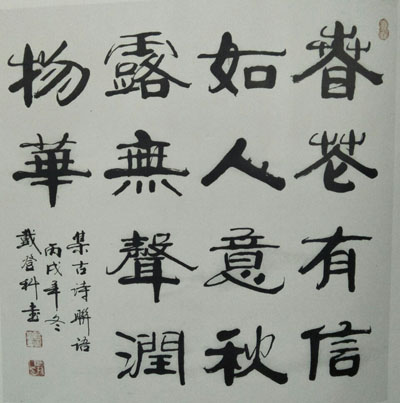 春花有信
如人意秋
露無聲潤
物華
集古诗聯语
丙戌年冬
戴登科书